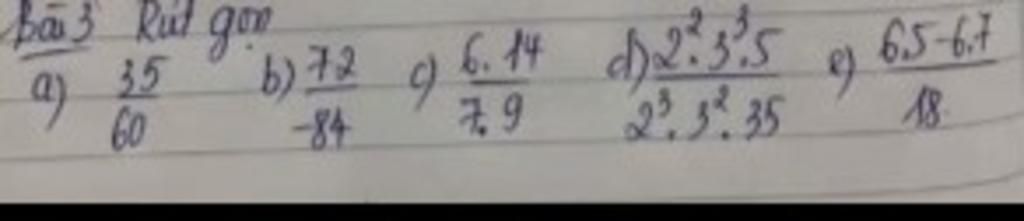 Bài 3 Rút gọn
a) 35/60 b) 72/-84 c) 6.14/7.9 d) 2².3³.5/2³.3².35 e) 6.5-6.7/18